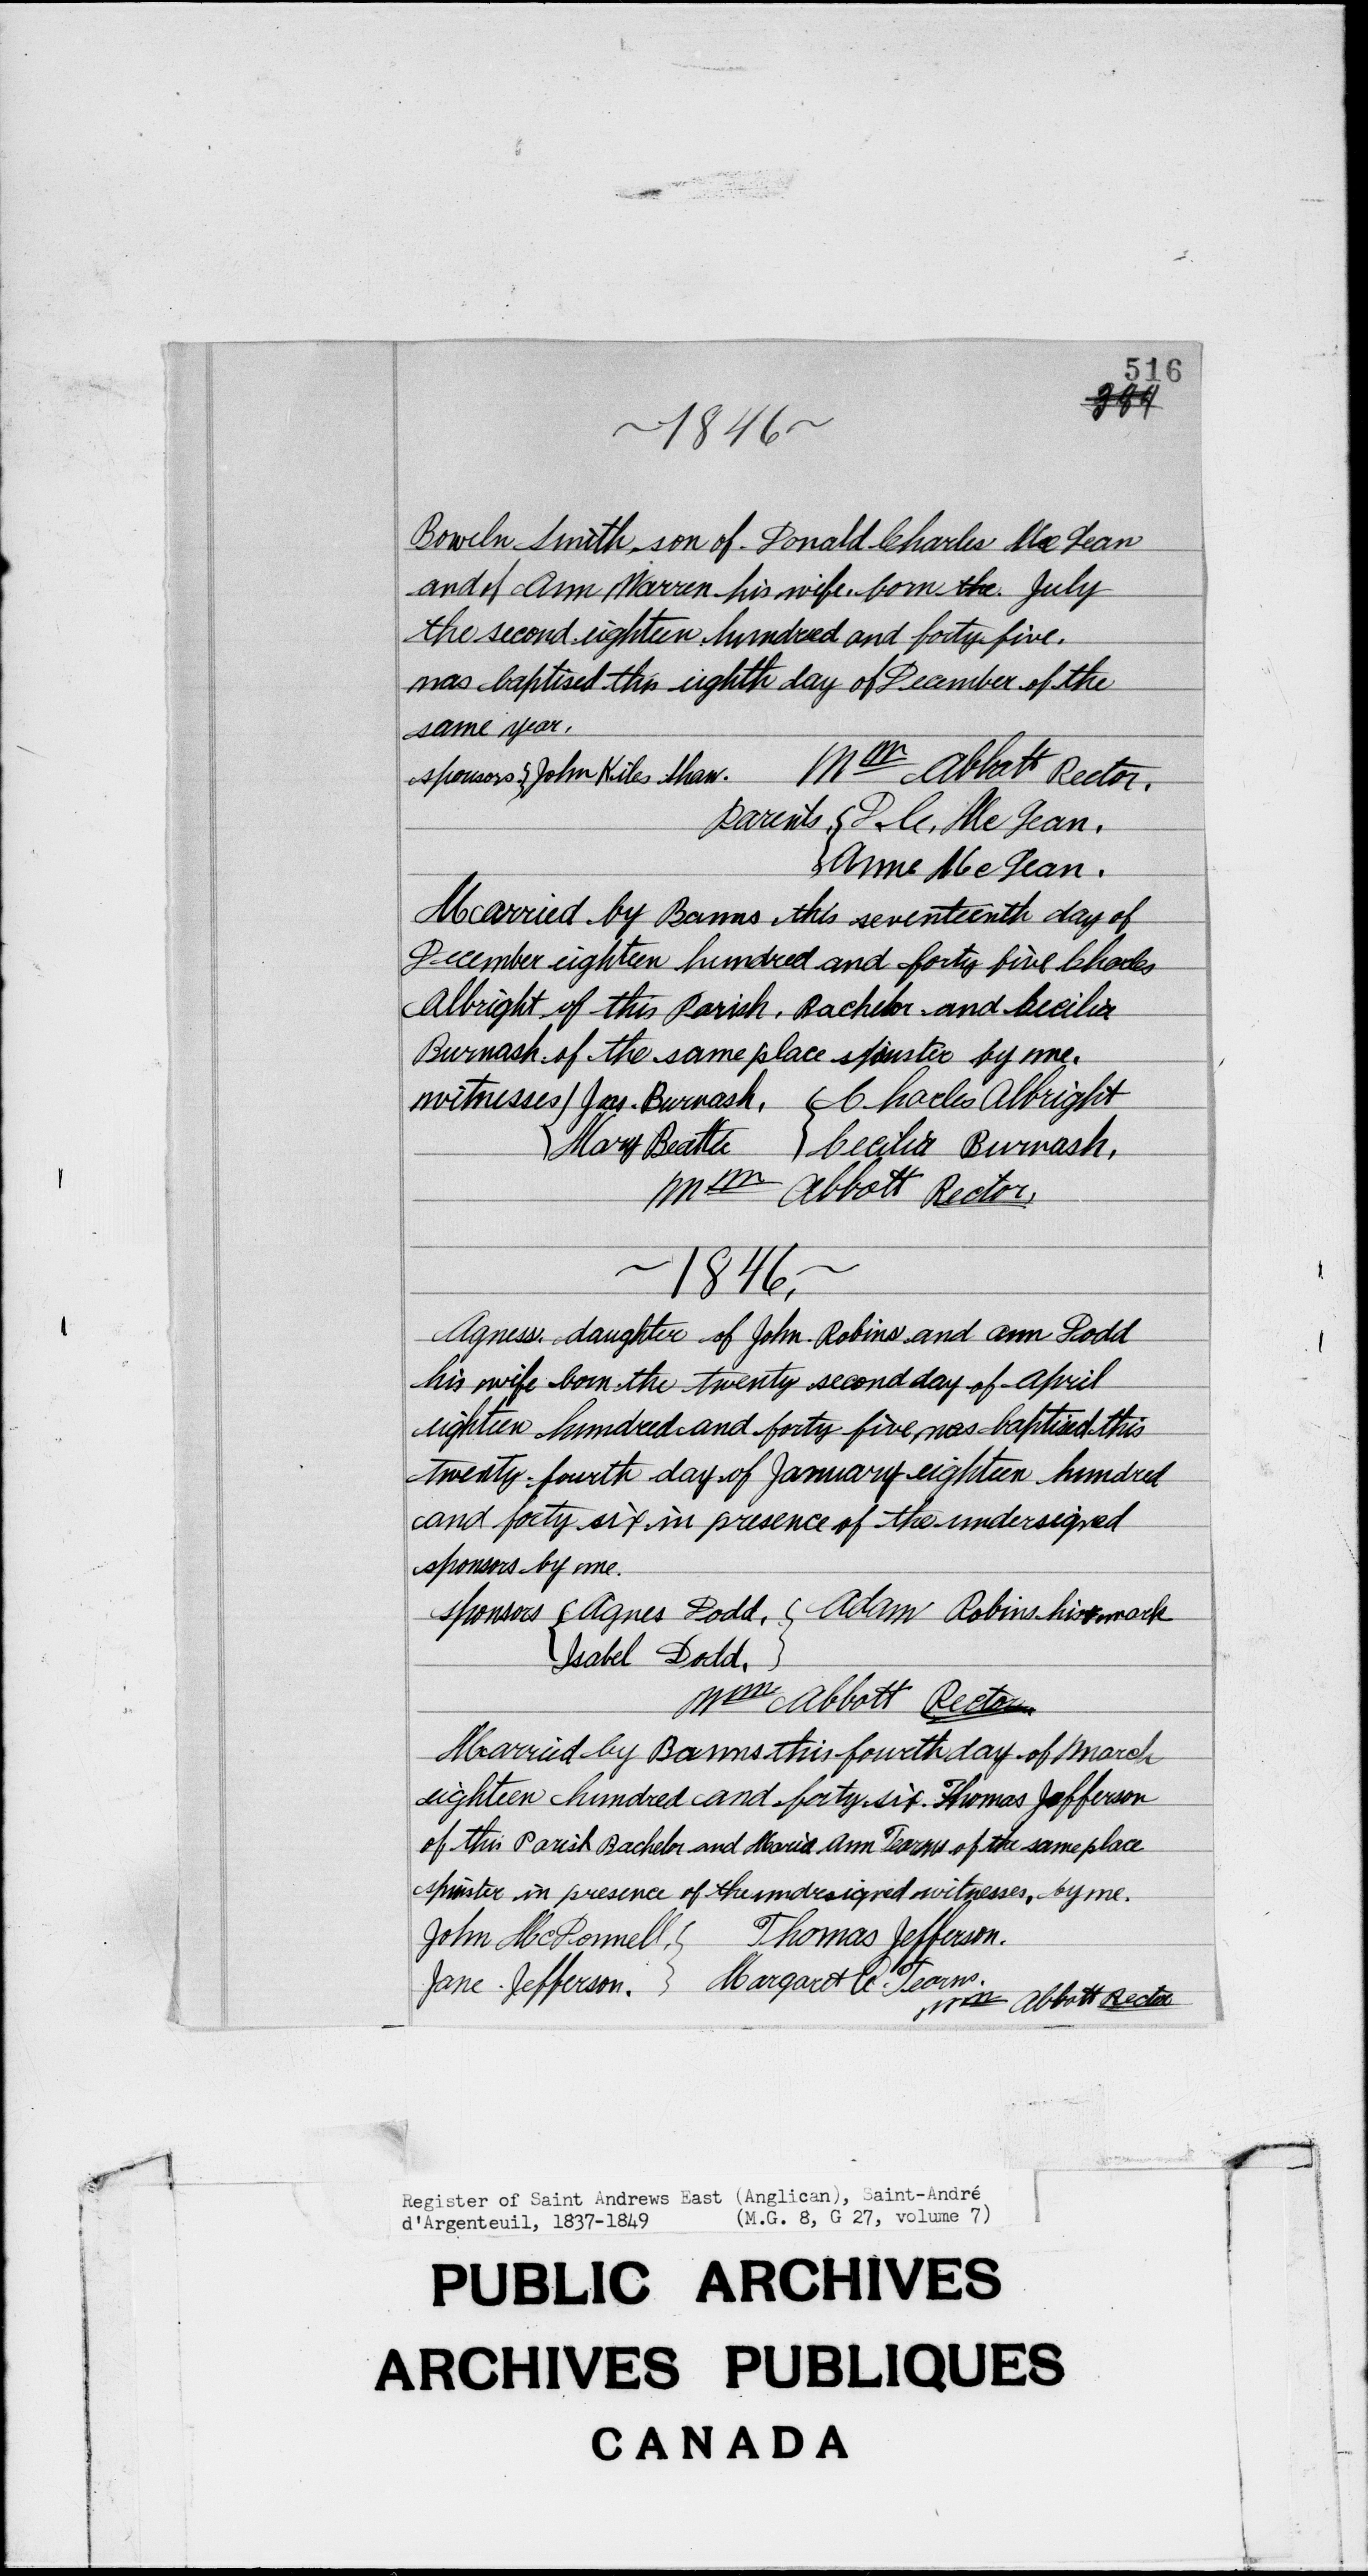 516
384
~1846~
Boweln Smith, son of Donald Charles McLean
and of Ann Warren his wife. born the. July
the second eighteen hundred and forty five.
was baptised this eighth day of December of the
same year.
sponsors } John Kiles Shaw. Wm Abbott Rector.
Parents { D. C. McLean.
{ Anne McLean.
Married by Banns this seventeenth day of
December eighteen hundred and forty five Charles
Albright of this Parish. Bachelor and Cecilia
Burwash of the same place spinster by me.
witnesses { Jas. Burwash. { Charles Albright
{ Mary Beattie } Cecilia Burwash.
Wm Abbott Rector.
~1846.~
Agness daughter of John Robins and ann Dodd
his wife born the twenty second day of April
eighteen hundred and forty five, was baptised this
twenty fourth day of January eighteen hundred
and forty six in presence of the undersigned
sponsors by me.
sponsors { Agnes Dodd. { Adam Robins his x mark
{ Isabel Dodd. }
Wm Abbott Rector.
Married by Banns this fourth day of March
eighteen hundred and forty six. Thomas Jefferson
of this Parish Bachelor and Maria Ann Tearns of the same place
spinster in presence of the undersigned witnesses, by me.
John McDonnell. { Thomas Jefferson.
Jane Jefferson. } Margaret A. Tearns.
Wm Abbott Rector
Register of Saint Andrews East (Anglican), Saint-André
d'Argenteuil, 1837-1849 (M.G. 8, G 27, volume 7)
PUBLIC ARCHIVES
ARCHIVES PUBLIQUES
CANADA